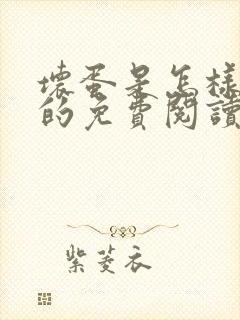 壞蛋是怎樣
的免費閱讀
紫菱衣